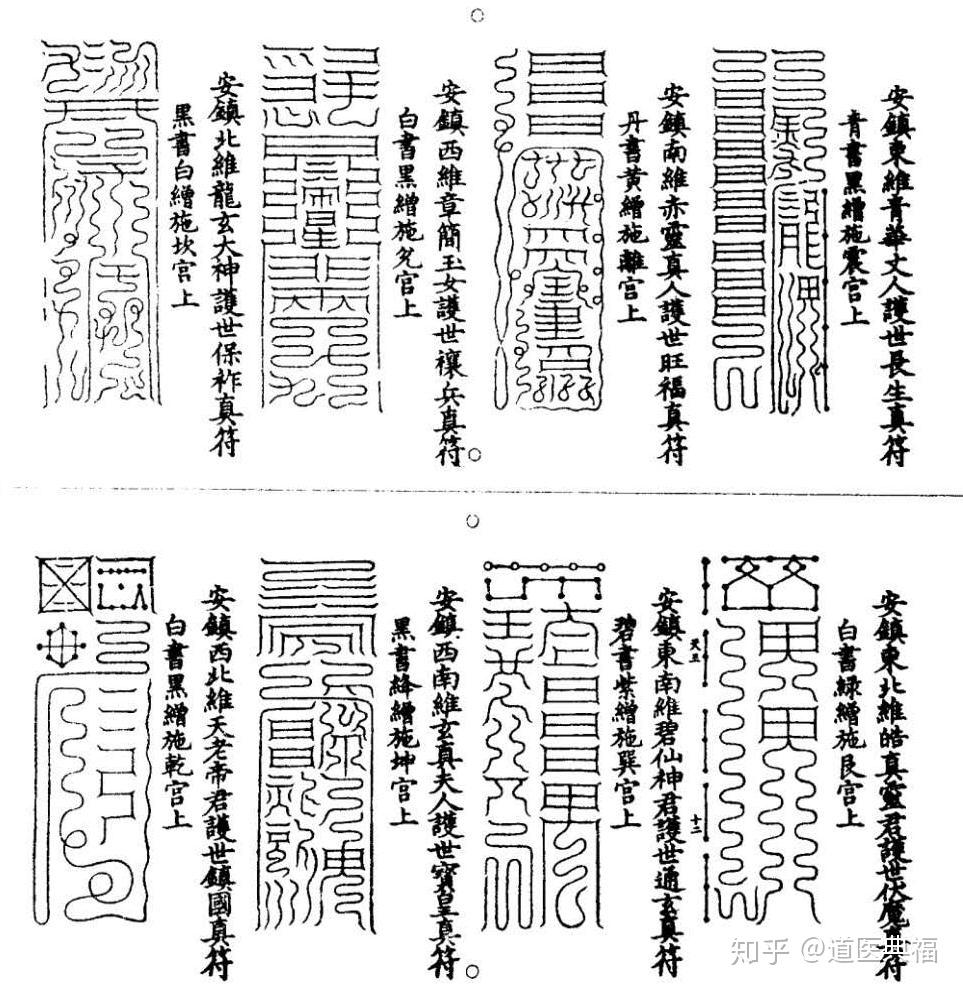 安鎮東維青華丈人護世長生真符
青書黑繒施震宮上
安鎮南維赤靈真人護世旺福真符
丹書黃繒施離宮上
安鎮西維章簡玉女護世禳兵真符
白書黑繒施兌宮上
安鎮北維龍玄大神護世保祚真符
黑書白繒施坎宮上
安鎮東北維皓真靈君護世伏魔真符
白書綠繒施艮宮上
天五
十二
安鎮東南維碧仙神君護世通玄真符
碧書紫繒施巽宮上
安鎮西南維玄真夫人護世寶皇真符
黑書絳繒施坤宮上
安鎮西北維天老帝君護世鎮國真符
白書黑繒施乾宮上
知乎 @道医典福